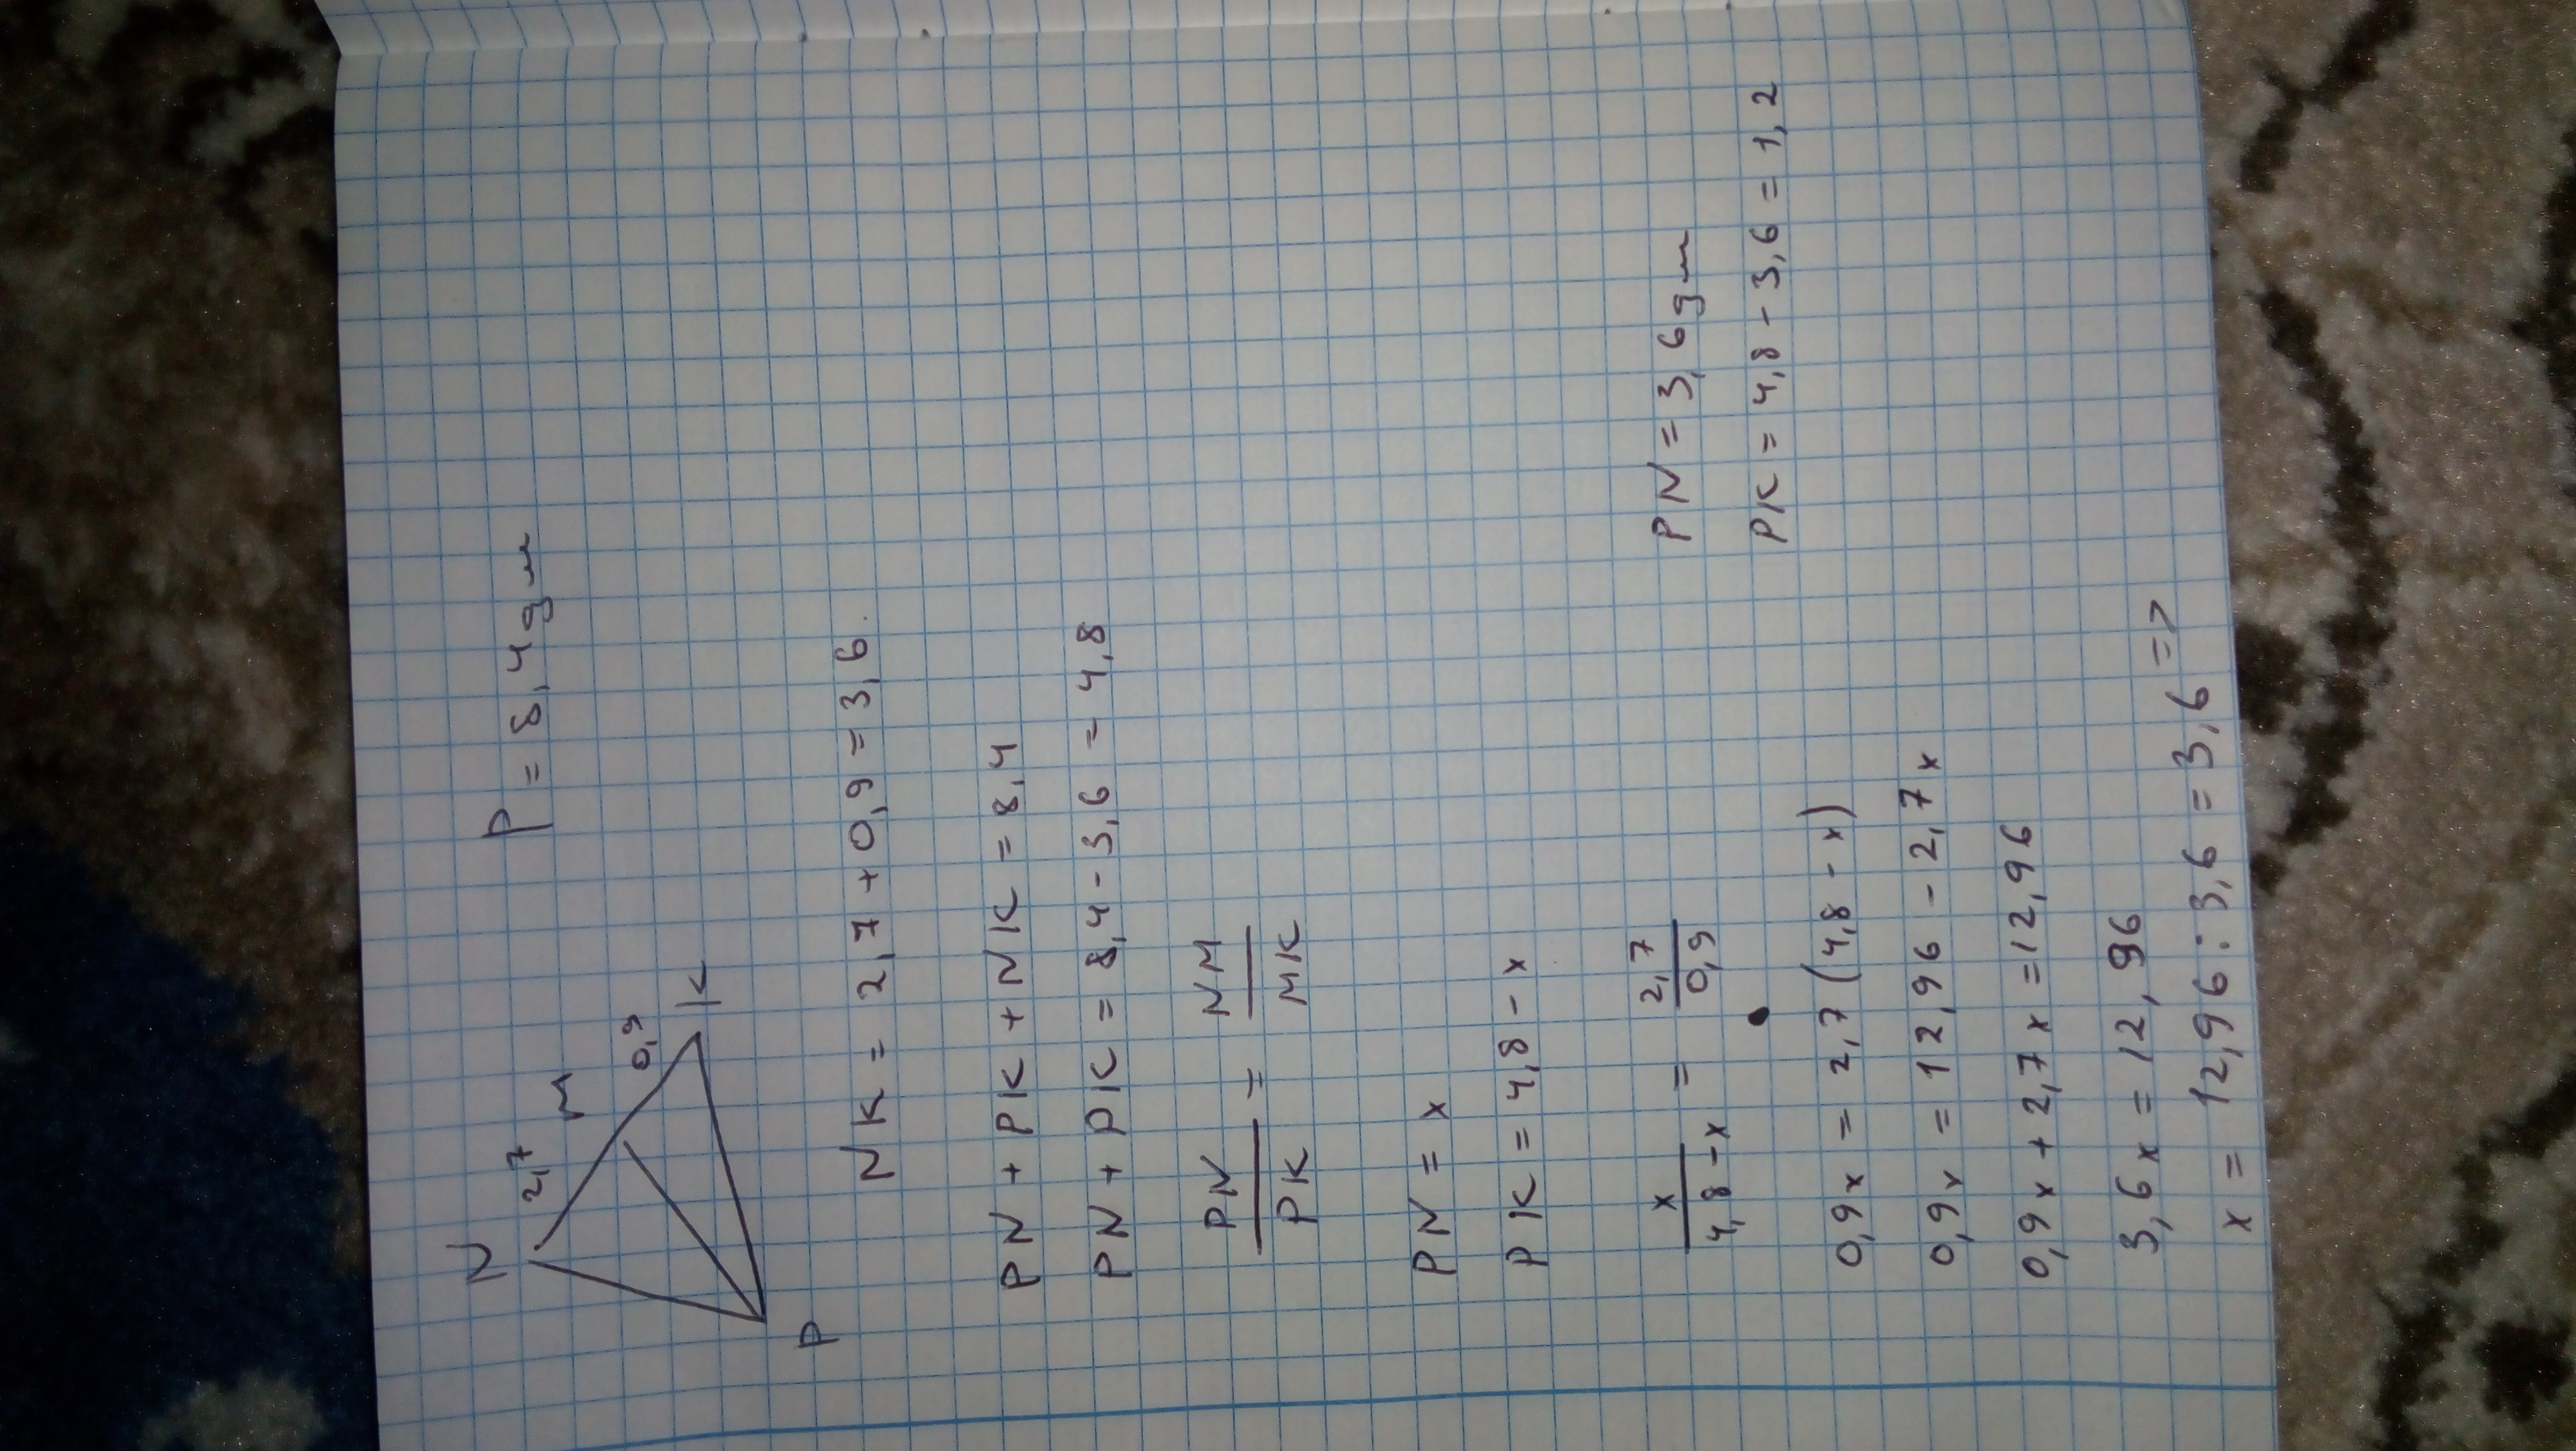 N
2,7
M
0,9
K
P
P = 8,4 дм
NK = 2,7 + 0,9 = 3,6.
PN + PK + NK = 8,4
PN + PK = 8,4 - 3,6 = 4,8
PN/PK = NM/MK
PN = x
PK = 4,8 - x
x/4,8 - x = 2,7/0,9
0,9x = 2,7 (4,8 - x)
0,9x = 12,96 - 2,7x
0,9x + 2,7x = 12,96
3,6x = 12,96
x = 12,96 : 3,6 = 3,6 =>
PN = 3,6 дм
PK = 4,8 - 3,6 = 1,2